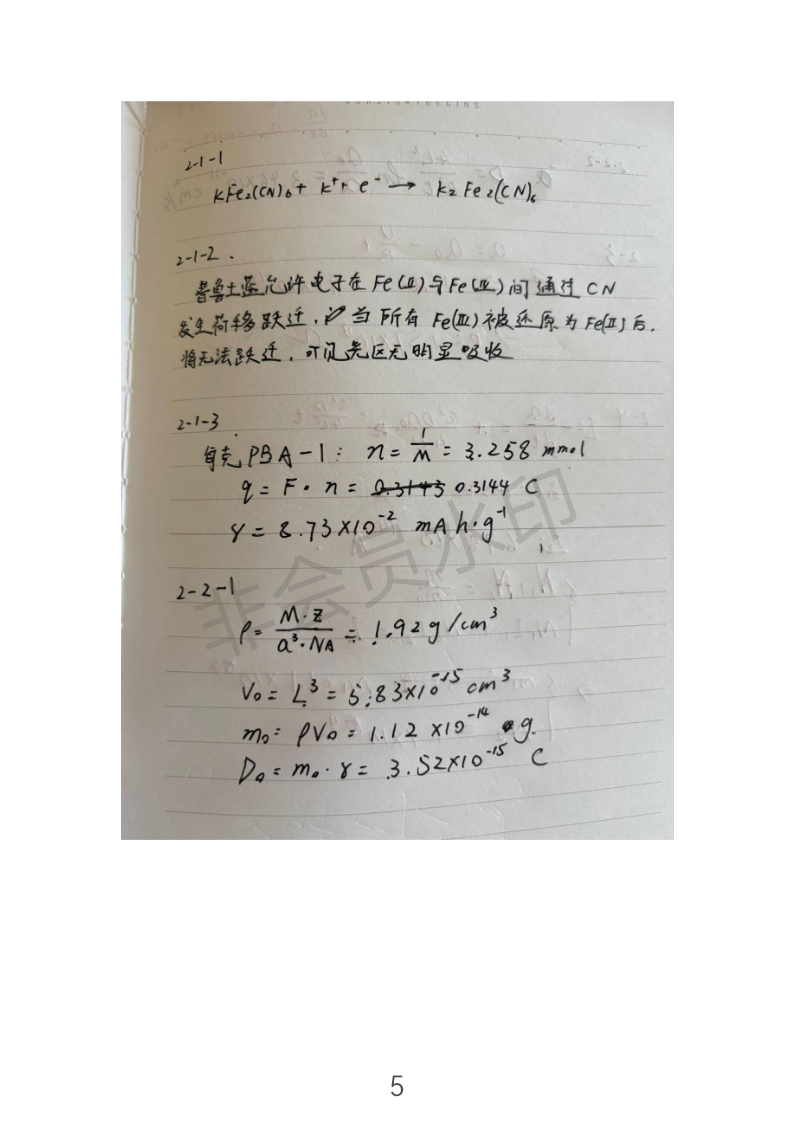 2-1-1
KFe₂(CN)₆ + K⁺ + e⁻ → K₂Fe₂(CN)₆
2-1-2.
普鲁士蓝允许电子在Fe(Ⅱ)与Fe(Ⅲ)间通过CN
发生荷移跃迁,当所有Fe(Ⅲ)被还原为Fe(Ⅱ)后,
将无法跃迁,可见光区无明显吸收
2-1-3
每克PBA-1: n = 1/M = 3.258 mmol
q = F·n = 0.3144 C
γ = 8.73×10⁻² mAh·g⁻¹
2-2-1
ρ = M·Z/(a³·NA) = 1.92 g/cm³
V₀ = L³ = 5.83×10⁻¹⁵ cm³
m₀ = ρV₀ = 1.12×10⁻¹⁴ g.
D₀ = m₀·γ = 3.52×10⁻¹⁵ C
非会员水印
5